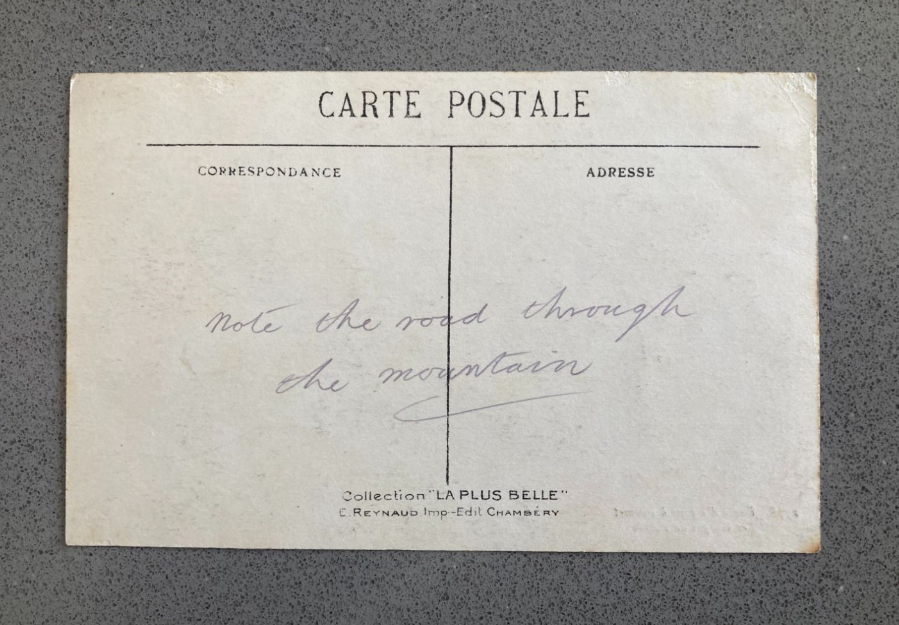 CARTE POSTALE
CORRESPONDANCE
ADRESSE
note the road through
the mountain
Collection "LA PLUS BELLE"
E. REYNAUD Imp-Edit CHAMBÉRY